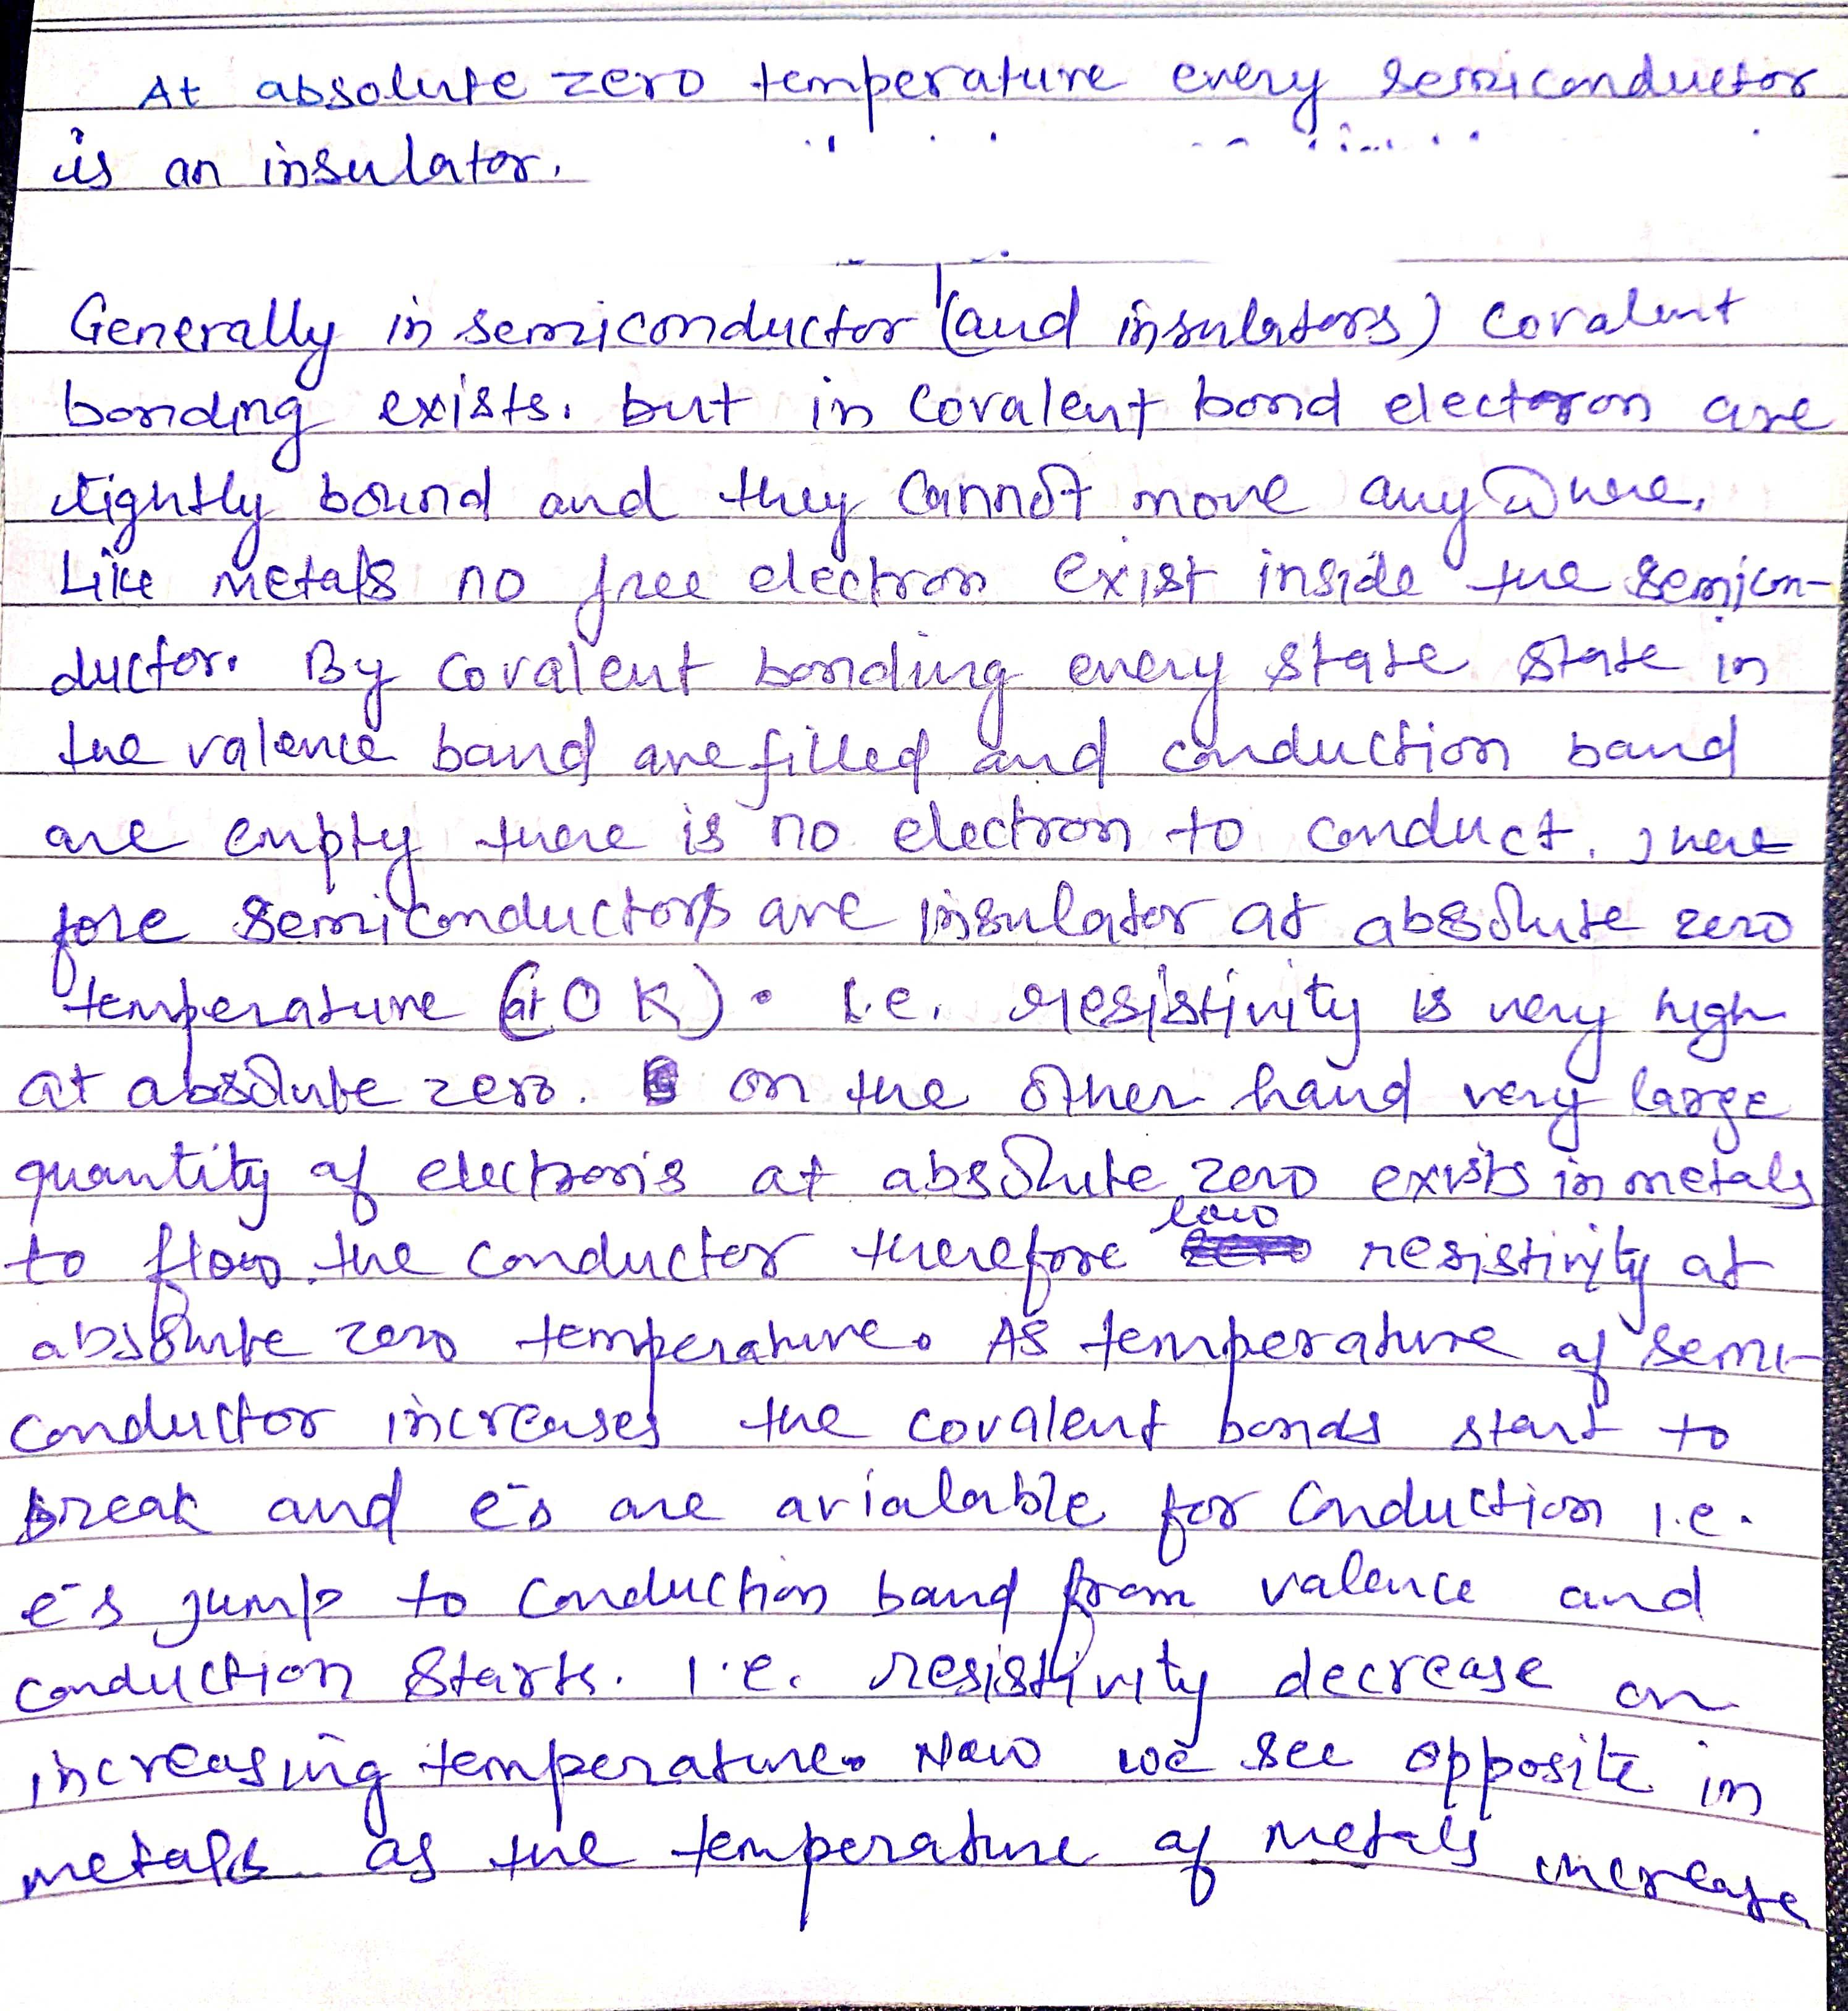 At absolute zero temperature every semiconductor
is an insulator.
Generally in semiconductor (and insulators) covalent
bonding exists. but in covalent bond electoron are
tightly bound and they cannot move anywhere.
Like metals no free electron exist inside the semicon-
ductor. By covalent bonding every state state in
the valence band are filled and conduction band
are empty there is no electron to conduct. There
fore semiconductors are insulator at absolute zero
temperature (at 0 K). I.e. resistivity is very high
at absolute zero. on the other hand very large
quantity of electrons at absolute zero exists in metals
to flow the conductor therefore low resistivity at
absolute zero temperature. As temperature of semi-
conductor increases the covalent bonds start to
break and e⁻s are avialable for conduction i.e.
e⁻s jump to conduction band from valence and
conduction starts. i.e. resistivity decrease on
increasing temperature. Now we see opposite in
metals as the temperature of metals increase